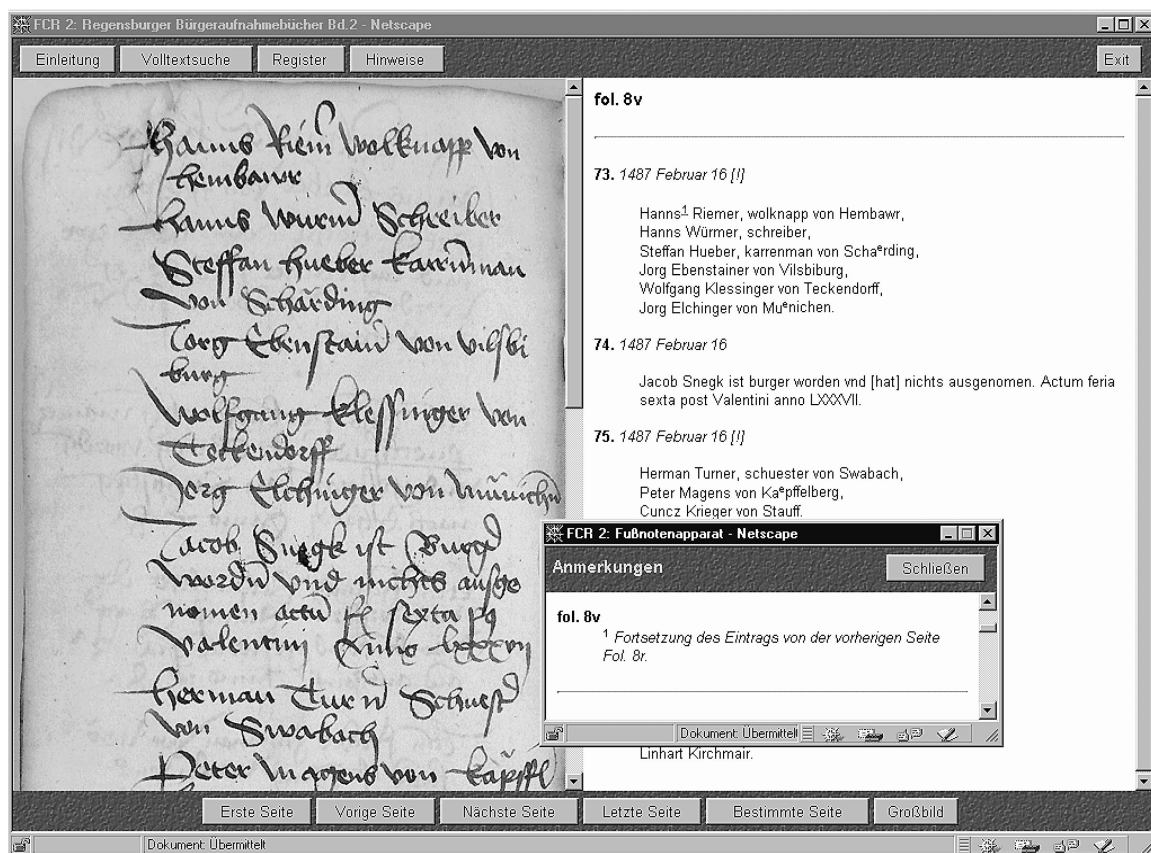 FCR 2: Regensburger Bürgeraufnahmebücher Bd.2 - Netscape
Einleitung Volltextsuche Register Hinweise Exit
Hanns Riem̄ wolknapp von
hembawr
Hanns würm̄ Schreiber
Steffan hueber karrn̄man
von Schärding
Jorg Ebenstain̄ von vilsbi
burg
Wolfgang klessinger von
Teckendorff
Jorg Elchinger von mūnichn̄
Jacob Snegk ist Burḡ
wordn̄ vnd nichts ausge
nomen actū sexta
valentini Anno lxxxvij
herman Turn̄ Schuest̄
von Swabach
Peter magens von käpffl
fol. 8v
73. 1487 Februar 16 [!]
Hanns¹ Riemer, wolknapp von Hembawr,
Hanns Würmer, schreiber,
Steffan Hueber, karrenman von Schaᵉrding,
Jorg Ebenstainer von Vilsbiburg,
Wolfgang Klessinger von Teckendorff,
Jorg Elchinger von Muᵉnichen.
74. 1487 Februar 16
Jacob Snegk ist burger worden vnd [hat] nichts ausgenomen. Actum feria
sexta post Valentini anno LXXXVII.
75. 1487 Februar 16 [!]
Herman Turner, schuester von Swabach,
Peter Magens von Kaᵉpffelberg,
Cuncz Krieger von Stauff.
FCR 2: Fußnotenapparat - Netscape
Anmerkungen Schließen
fol. 8v
¹ Fortsetzung des Eintrags von der vorherigen Seite
Fol. 8r.
Dokument: Übermittelt
Linhart Kirchmair.
Erste Seite Vorige Seite Nächste Seite Letzte Seite Bestimmte Seite Großbild
Dokument: Übermittelt